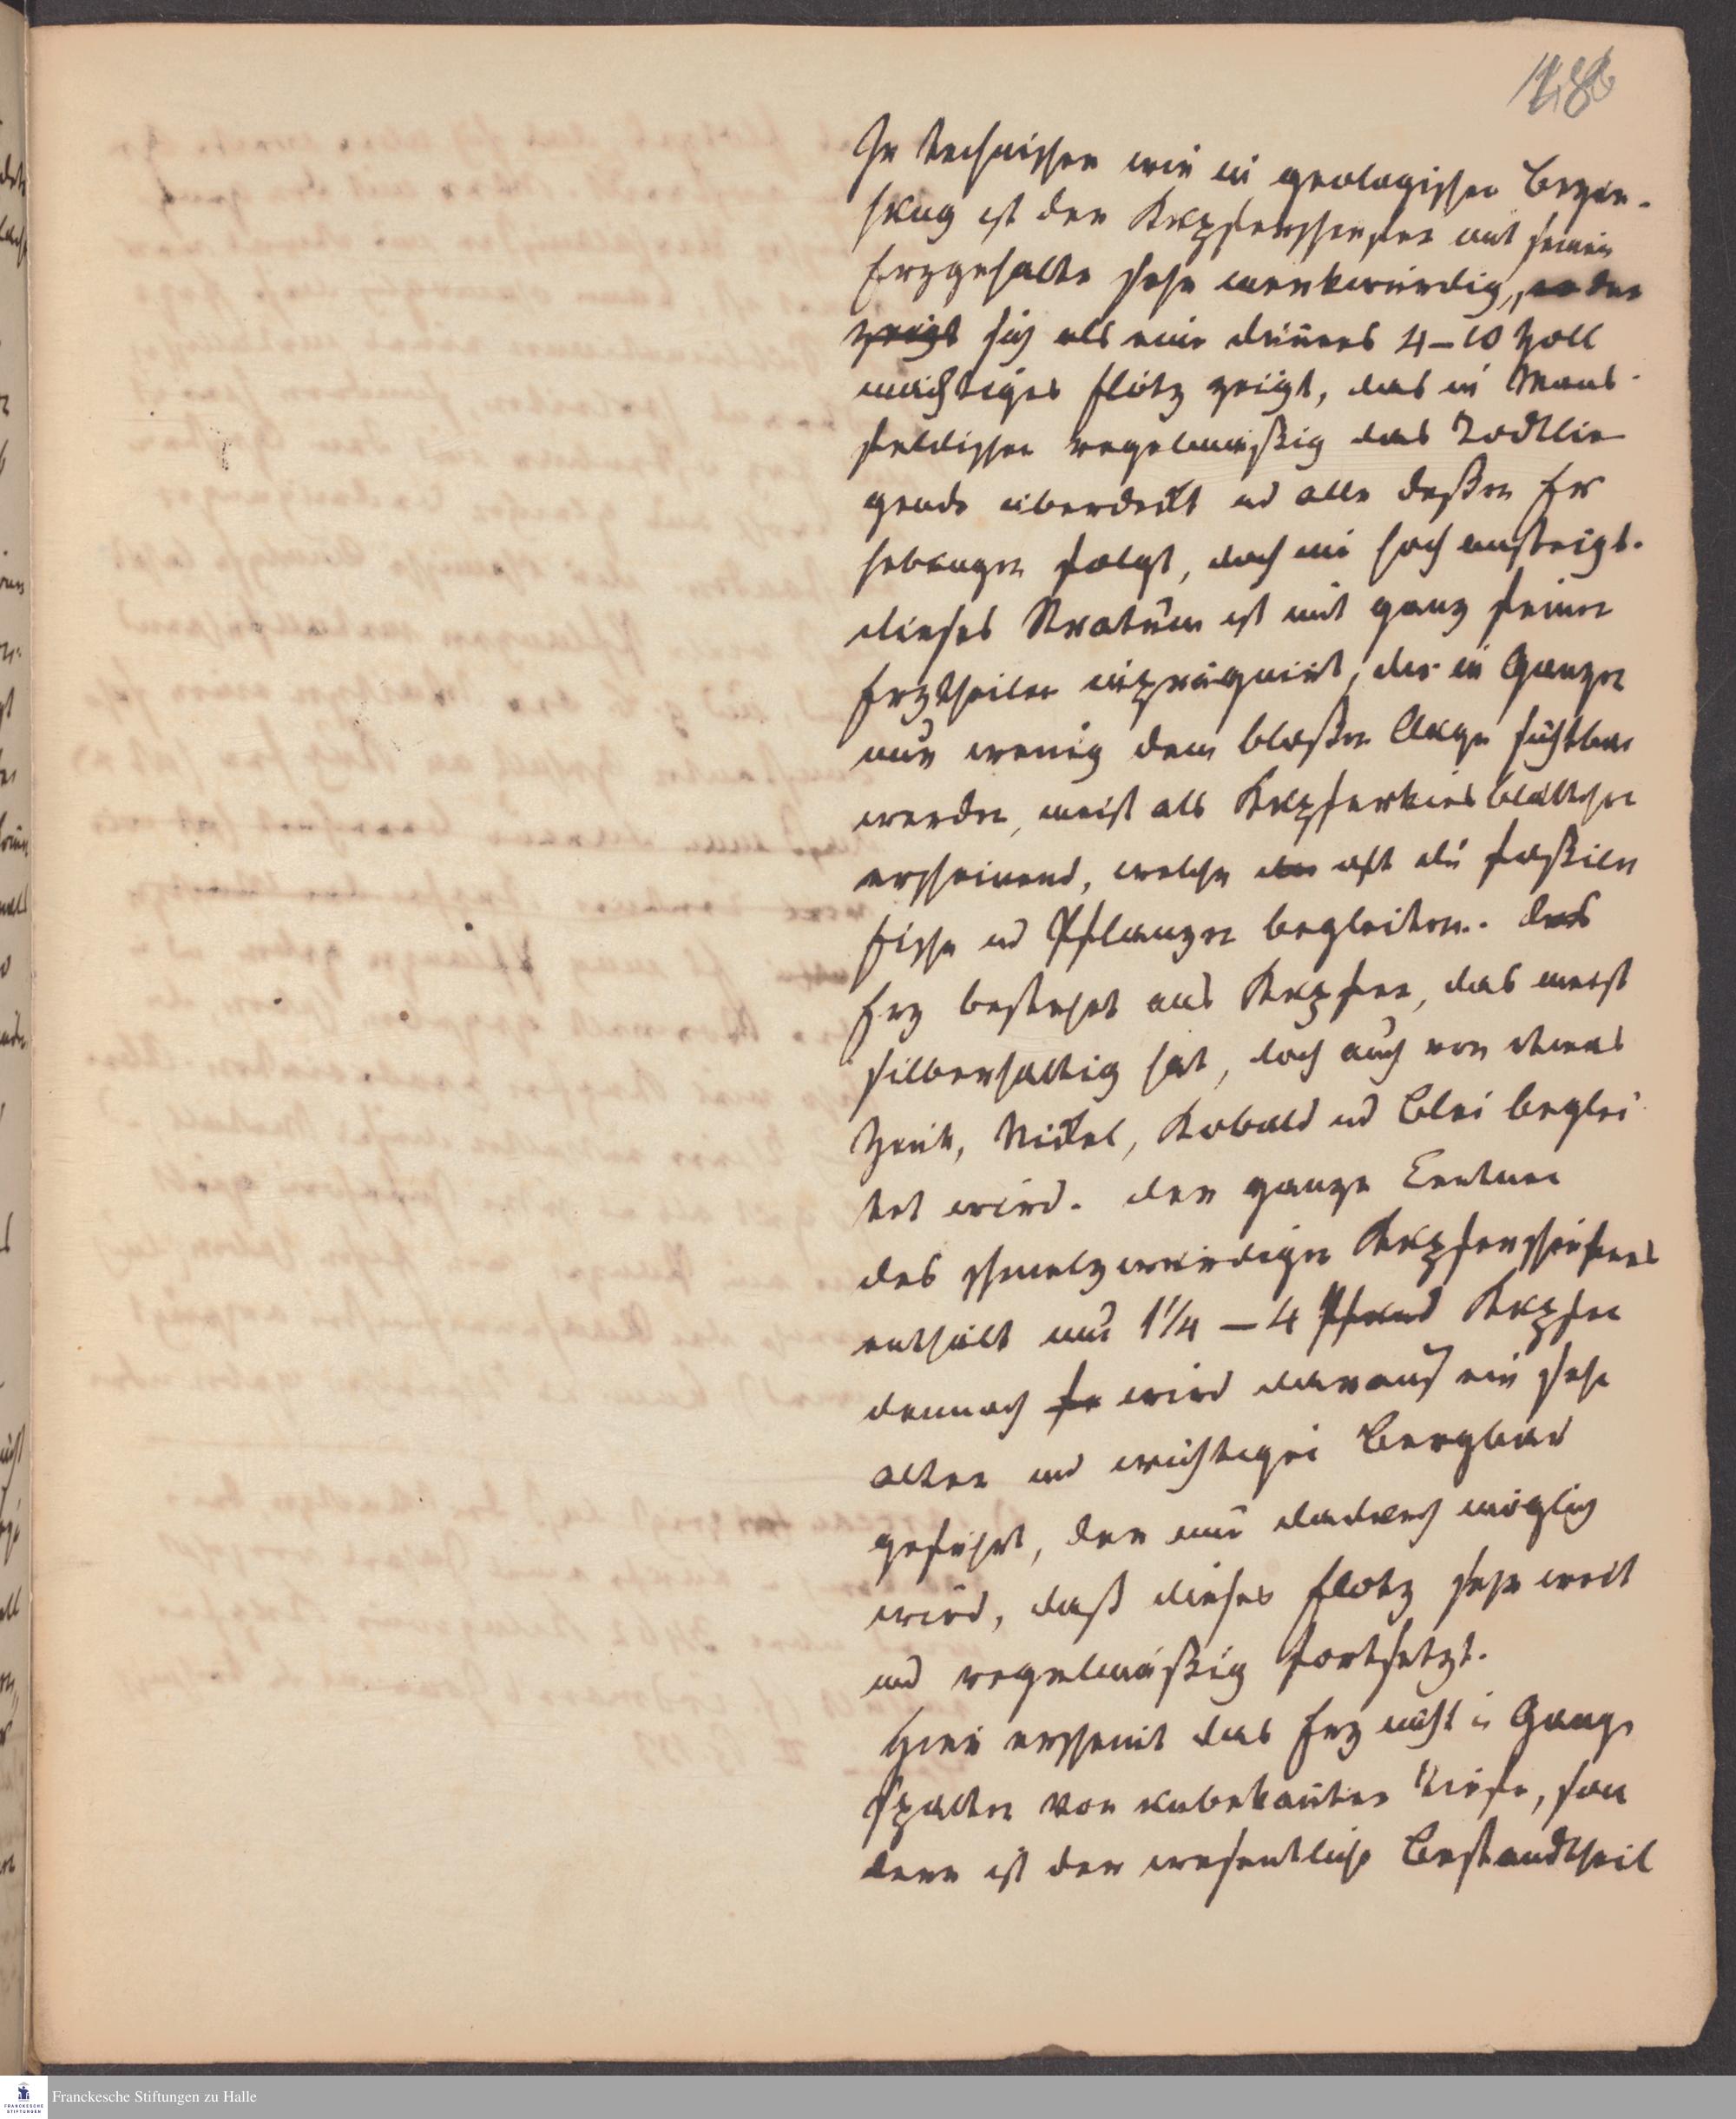 In technischer wie in geologischer Bezie-
hung ist der Kupferschiefer mit seinem
Erzgehalte sehr merkwürdig, der
zeigt sich als ein dünnes 4–10 Zoll
mächtiges Flötz zeigt, das in Mans-
feldischen regelmäßig das Todtlie
gende überdeckt und alle deßen Er
hebungen folgt, doch nie hoch ansteigt.
dieses Stratum ist mit ganz feinen
Erztheilen imprägnirt, die im Ganzen
nur wenig dem bloßen Auge sichtbar
werden, meist als Kupferkiesblättchen
erscheinend, welche oft die foßilen
Fische und Pflanzen begleiten. das
Erz bestehet aus Kupfer, das meist
silberhaltig ist, doch auch von etwas
Zink, Nickel, Kobald und Blei beglei
tet wird. der ganze Centner
des schmelzwürdigen Kupferschiefers
enthält nur 1¼ – 4 Pfund Kupfer
dennoch wird darauf ein sehr
alter und wichtiger Bergbau
geführt, der nur dadurch möglich
wird, daß dieses Flötz sehr weit
und regelmäßig fortsetzt.
Hier erscheint das Erz nicht in Gang-
spalten von unbekanter Tiefe, son
dern ist der wesentliche Bestandtheil
Franckesche Stiftungen zu Halle
FRANCKESCHE
STIFTUNGEN